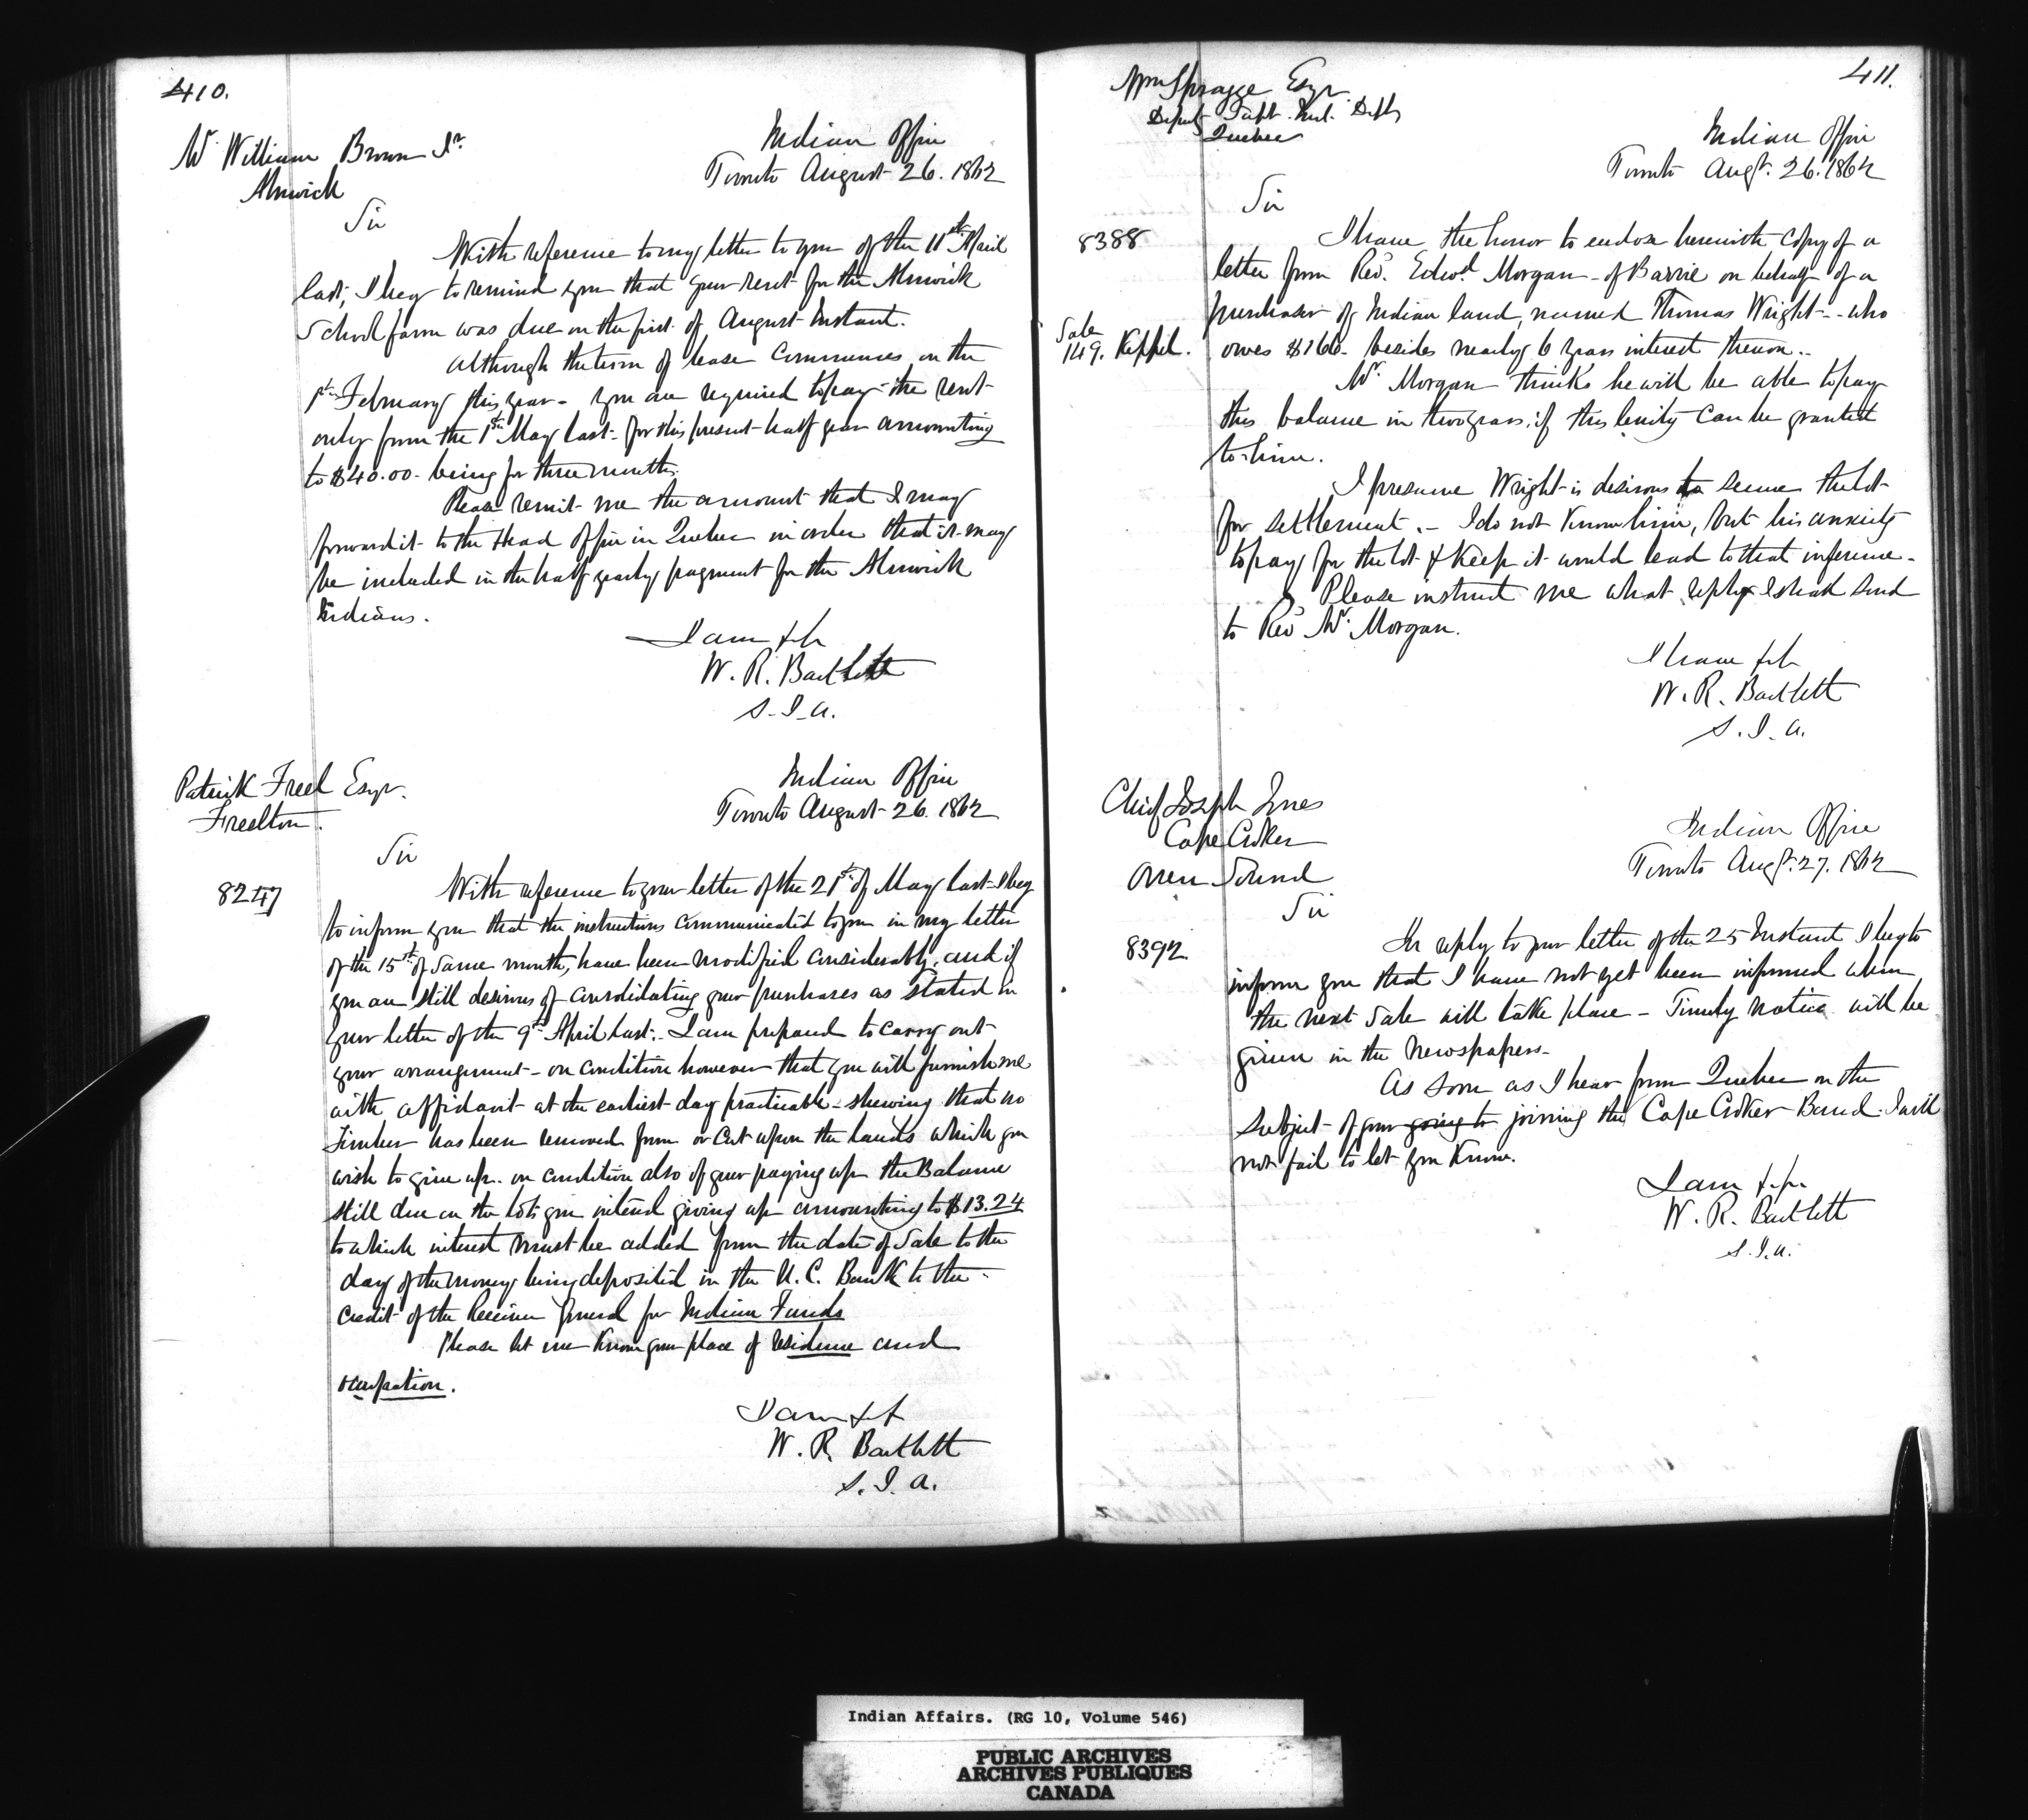 410.
Mr William Brown Jr.
Alnwick
Indian Office
Toronto August 26. 1862
Sir
With reference to my letter to you of the 11th April
last, I beg to remind you that your rent for the Alnwick
School farm was due on the first of August Instant.
Although the term of lease commences on the
1st February this year - you are required to pay the rent
only from the 1st May last - for this present half year amounting
to $40.00 - being for three months.
Please remit me the amount that I may
forward it to the Head Office in Quebec in order that it may
be included in the half yearly payment for the Alnwick
Indians.
I am &c
W. R. Bartlett
S. I. A.
Patrick Freel Esqr.
Freelton.
Indian Office
Toronto August 26. 1862
Sir
8247
With reference to your letter of the 21st of May last I beg
to inform you that the instructions communicated to you in my letter
of the 15th of same month, have been modified considerably, and if
you are still desirous of consolidating your purchases as stated in
your letter of the 9th April last. I am prepared to carry out
your arrangement - on condition however that you will furnish me
with affidavit at the earliest day practicable - shewing that no
Timber has been removed from or cut upon the lands which you
wish to give up - on condition also of your paying up the Balance
still due on the lots you intend giving up amounting to $13.24
to which interest must be added from the date of Sale to the
day of the money being deposited in the U. C. Bank to the
credit of the Receiver General for Indian Funds
Please let me know your place of residence and
occupation.
I am &c
W. R. Bartlett
S. I. A.
411.
Wm Spragge Esqr.
Deputy Supt. Ind. Affs
Quebec
Indian Office
Toronto Augt. 26. 1862
Sir
8388
I have the honor to enclose herewith copy of a
letter from Revd. Edwd Morgan - of Barrie on behalf of a
purchaser of Indian land, named Thomas Wright - who
Sale
149. Keppel.
owes $166 - besides nearly 6 years interest thereon.
Mr. Morgan thinks he will be able to pay
this balance in two years, if this lenity can be granted
to him.
I presume Wright is desirous to secure the lot
for settlement. - I do not know him, but his anxiety
to pay for the lot & keep it would lead to that inference.
Please instruct me what reply I shall send
to Rev Mr. Morgan.
I have &c
W. R. Bartlett
S. I. A.
Chief Joseph Jones
Cape Croker
Owen Sound
Indian Office
Toronto Augt. 27. 1862
Sir
8392
In reply to your letter of the 25 Instant I beg to
inform you that I have not yet been informed when
the next Sale will take place - Timely notice will be
given in the Newspapers.
As soon as I hear from Quebec on the
subject of your going to joining the Cape Croker Band I will
not fail to let you know.
I am &c
W. R. Bartlett
S. I. A.
Indian Affairs. (RG 10, Volume 546)
PUBLIC ARCHIVES
ARCHIVES PUBLIQUES
CANADA